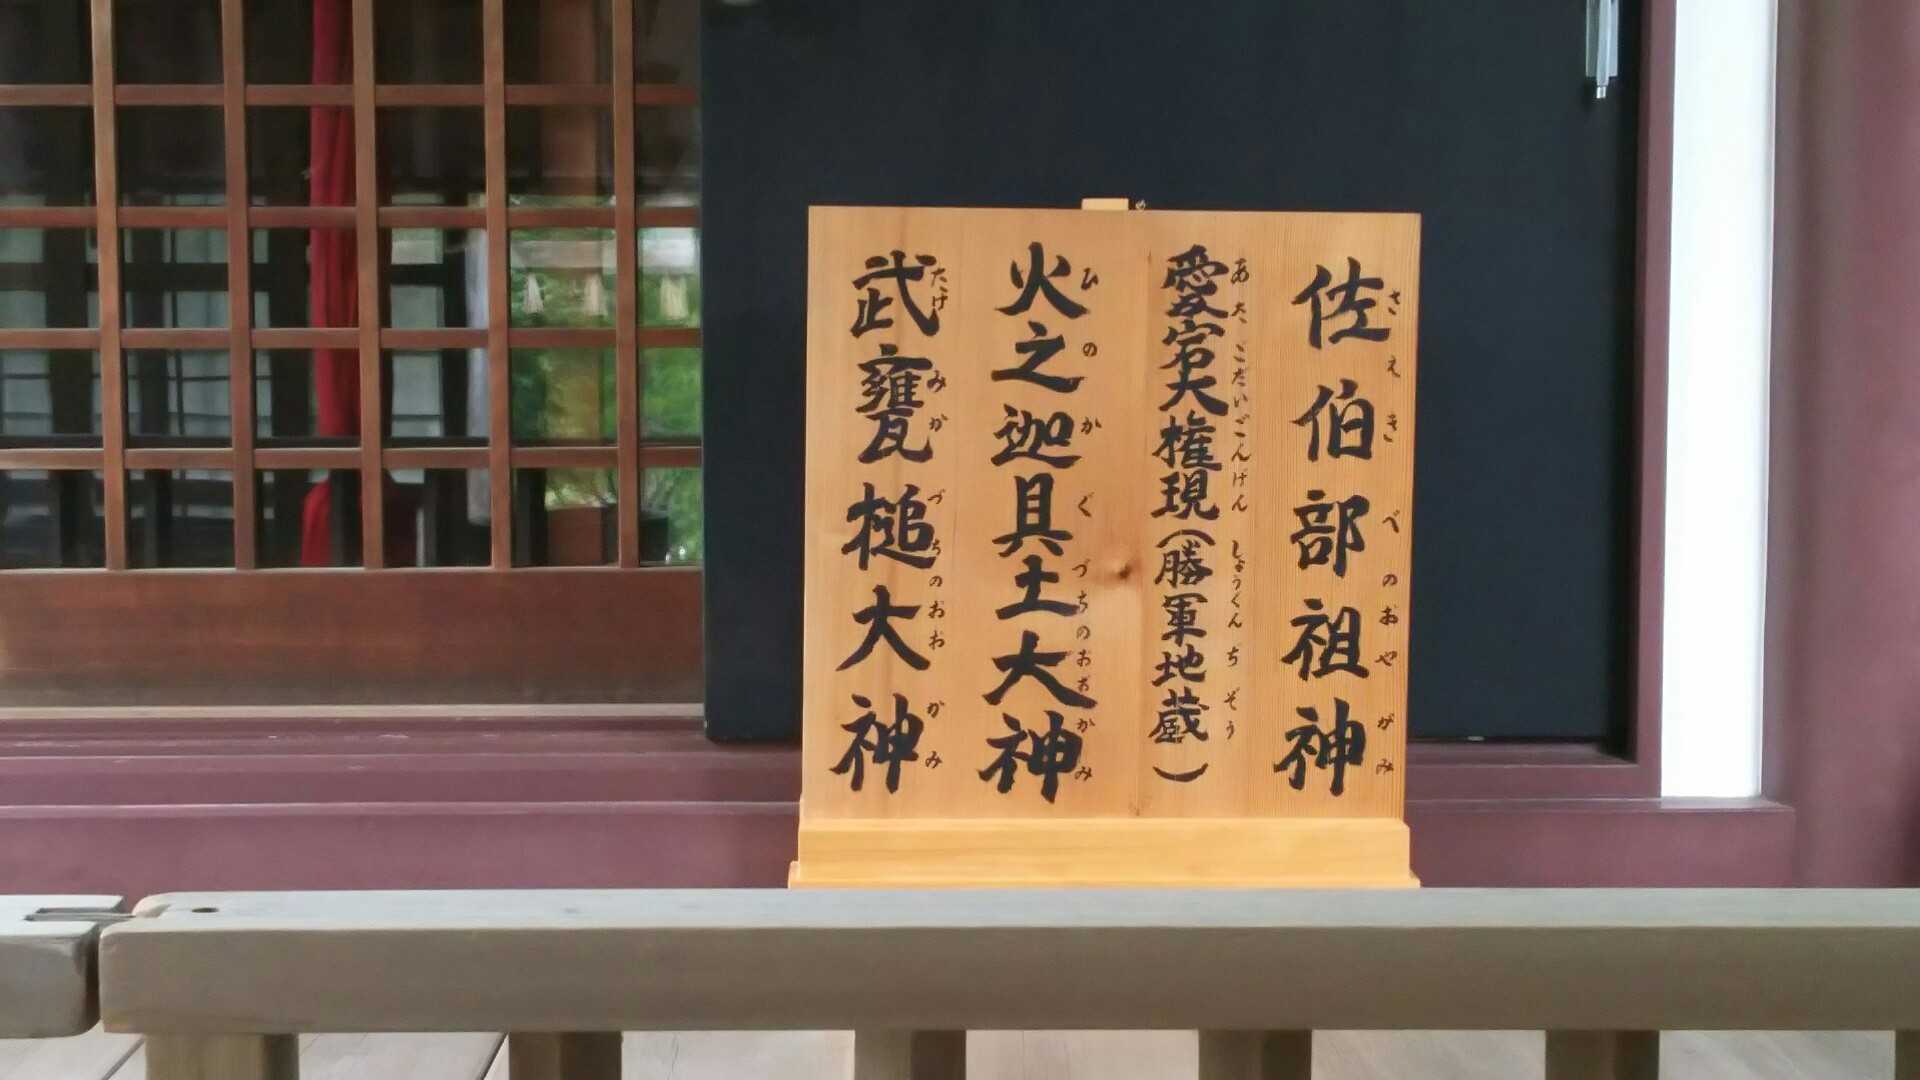 佐伯部祖神
さえきべのおやがみ
愛宕大権現(勝軍地蔵)
あたごだいごんげん しょうぐんちぞう
火之迦具土大神
ひのかぐづちのおおかみ
武甕槌大神
たけみかづちのおおかみ